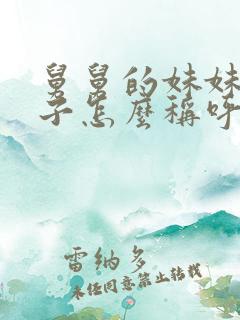 舅舅的妹妹
子怎麼稱呼
雷纳多
未经同意禁止转载